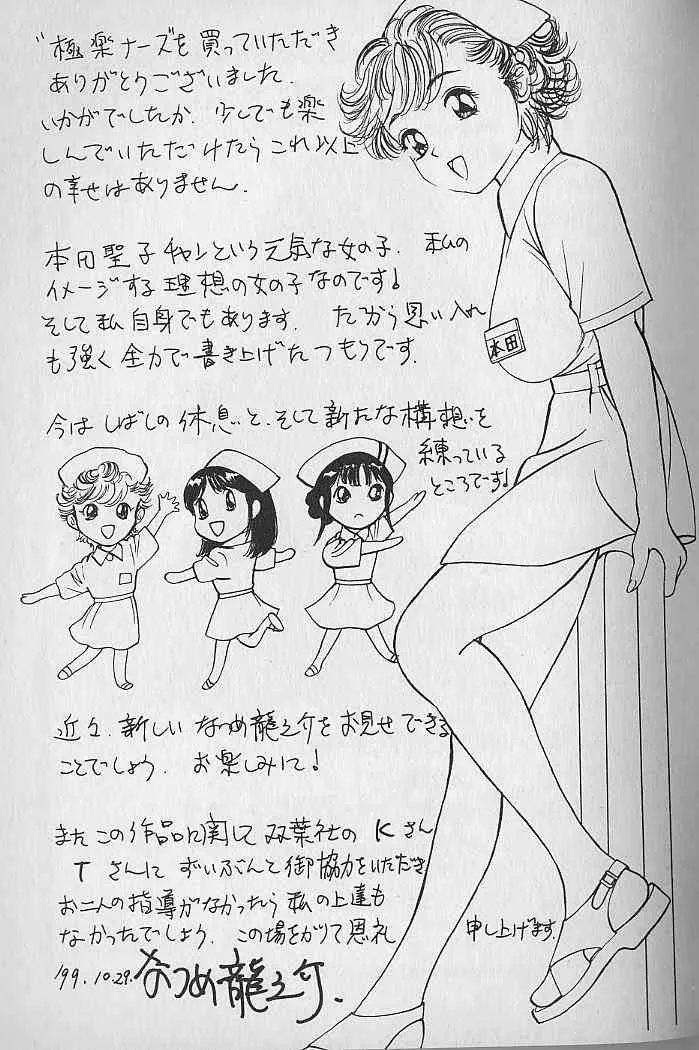 "極楽ナーズを買っていただき
ありがとうございました.
いかがでしたか. 少しでも楽
しんでいただけたらこれ以上
の幸せはありません.
本田聖子チャンという元気な女の子. 私の
イメージする理想の女の子なのです!
そして私自身でもあります. だから思い入れ
も強く全力で書き上げたつもりです.
本田
今はしばしの休息と、そして新たな構想を
練っている
ところです!
近々、新しいなつめ龍之介をお見せできる
ことでしょう. お楽しみに!
またこの作品に関して双葉社のKさん
Tさんにずいぶんと御協力をいただき
お二人の指導がなかったら私の上達も
なかったでしょう. この場をかりて恩礼
申し上げます.
'99.10.29. なつめ龍之介.